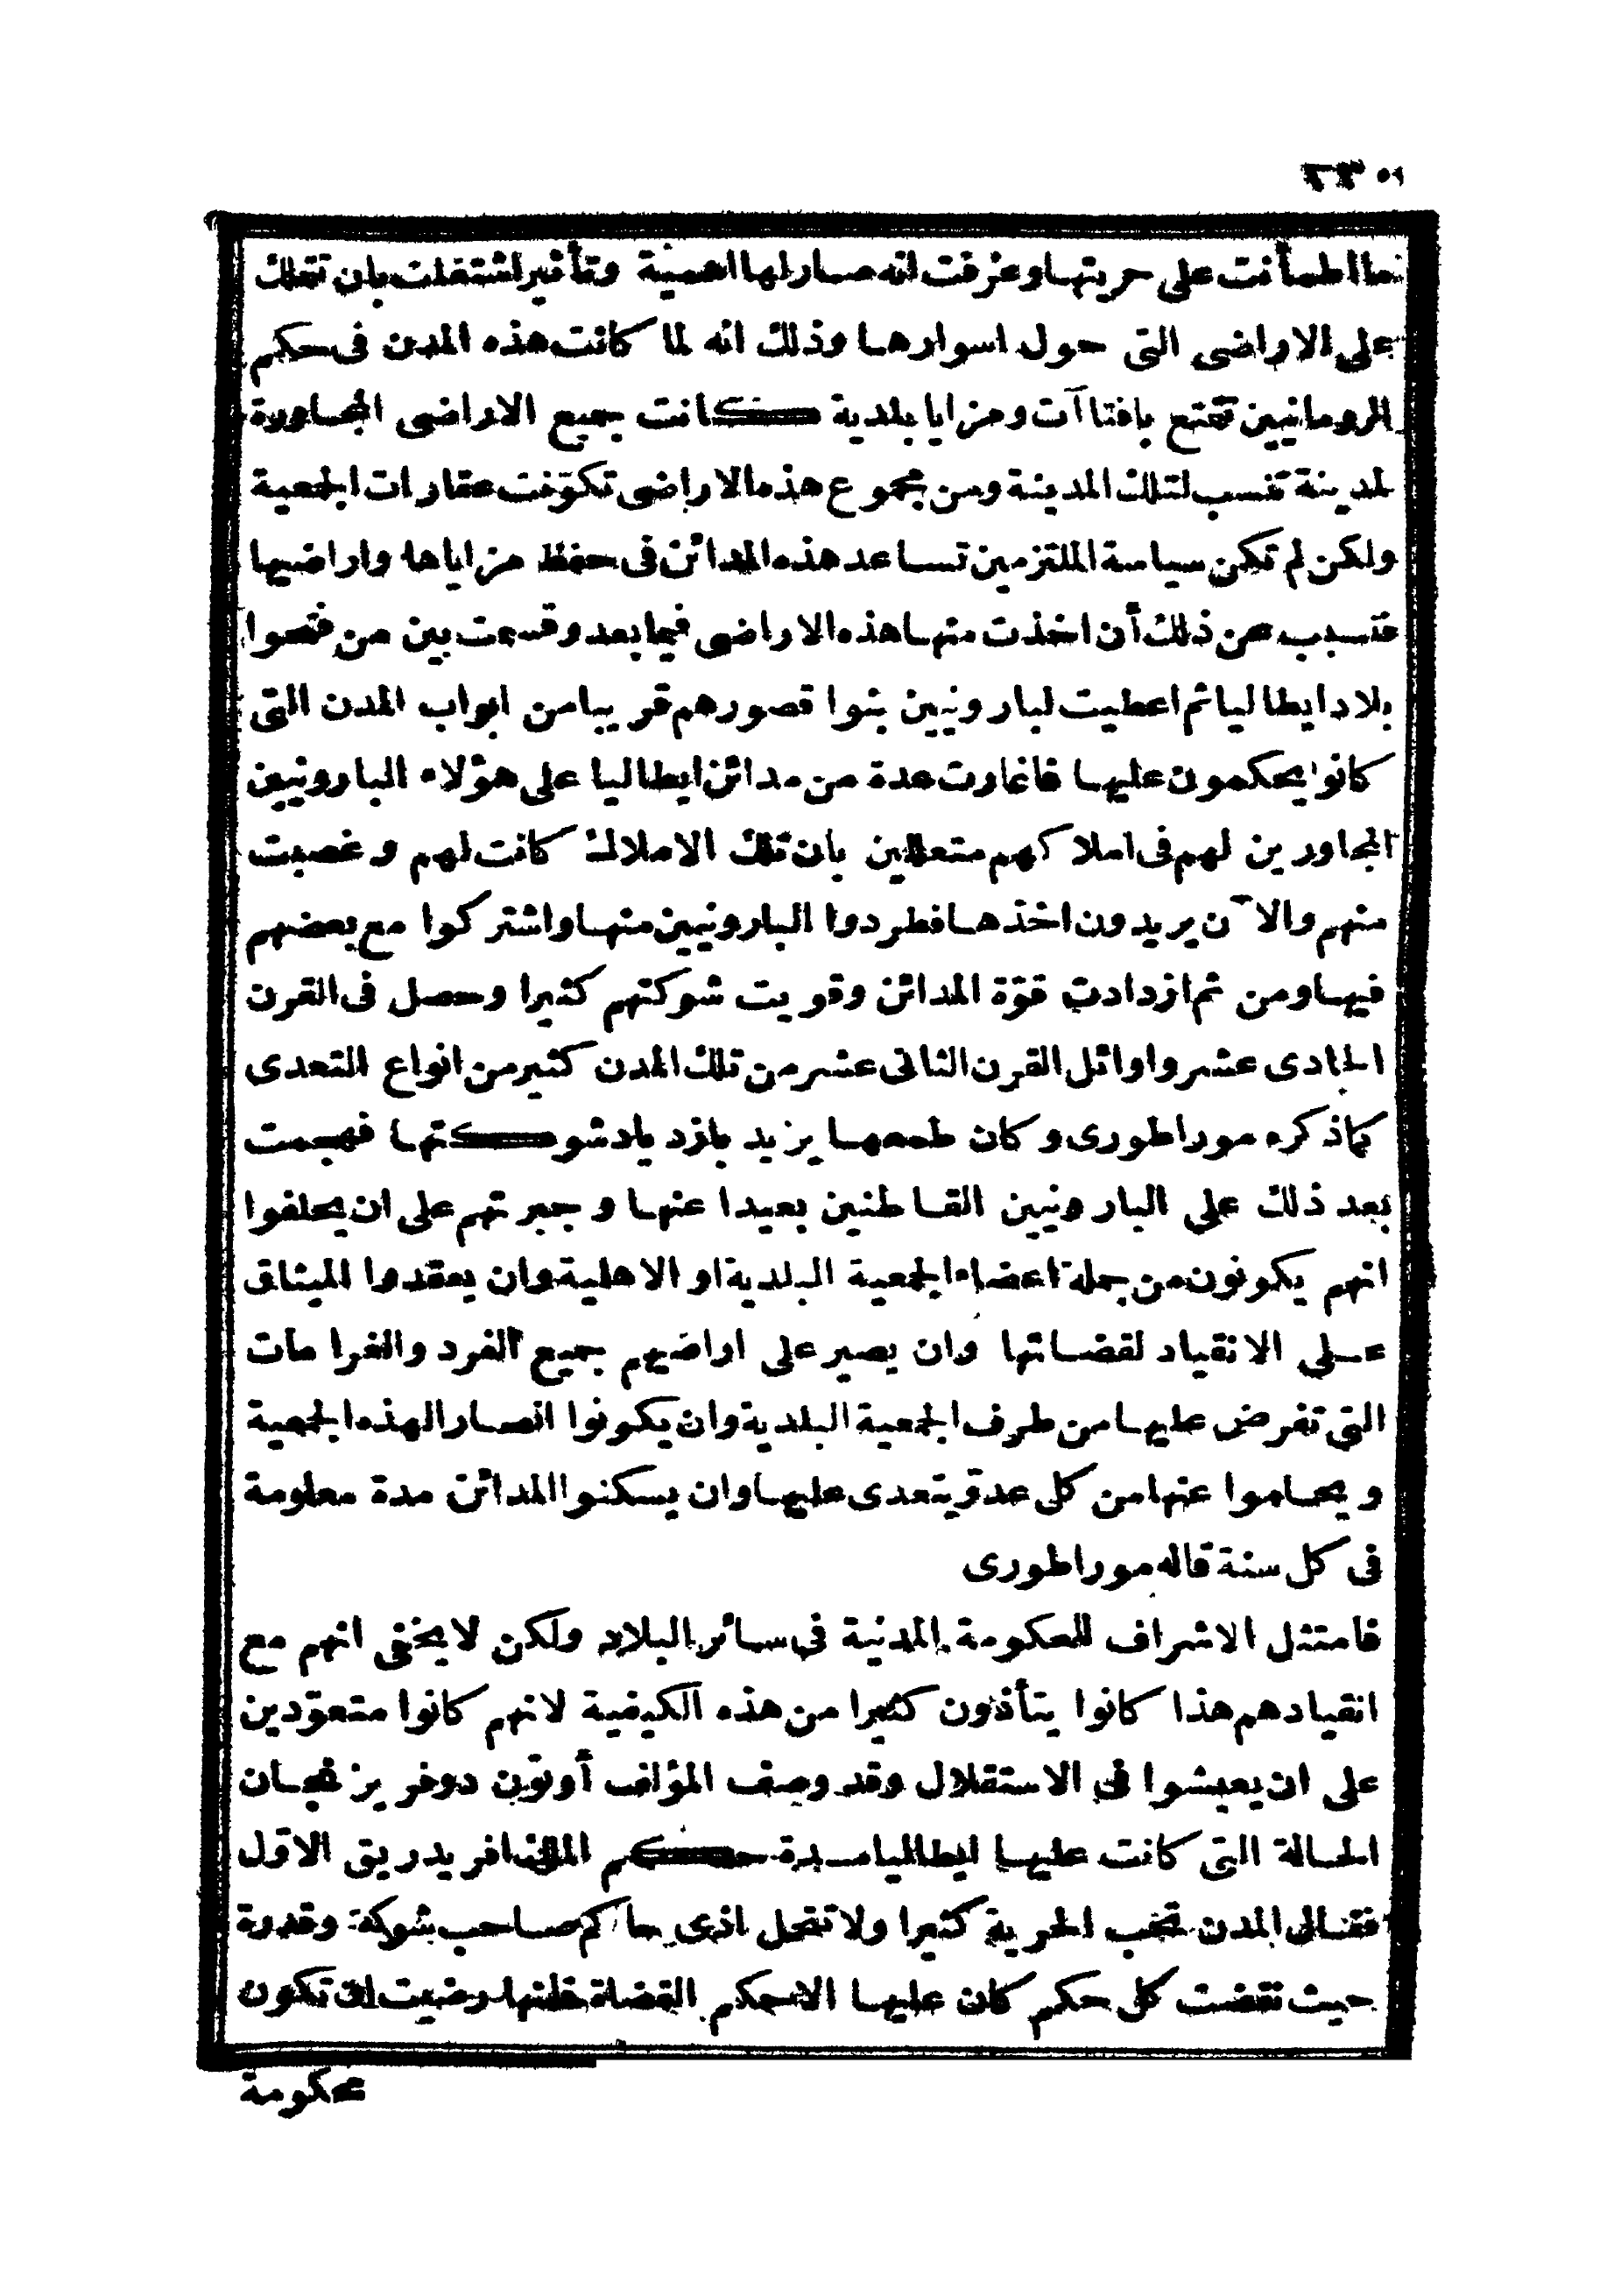 لما اطمأنت على حريتها وعرفت انه صار لها اهمية وتأثير اشتغلت بان تتملك
على الاراضى التى حول اسوارها وذلك انه لما كانت هذه المدن فى حكم
الرومانيين تتمتع بافتاآت ومزايا بلدية كانت جميع الاراضى المجاورة
لمدينة تنسب لتلك المدينة ومن مجموع هذه الاراضى تكوّنت عقارات الجمعية
ولكن لم تكن سياسة الملتزمين تساعد هذه المدائن فى حفظ مزاياها واراضيها
فتسبب عن ذلك أن اخذت منها هذه الاراضى فيما بعد وقسمت بين من فتحوا
بلاد ايطاليا ثم اعطيت لبارونيين بنوا قصورهم قريبا من ابواب المدن التى
كانوا يحكمون عليها فاغارت عدة من مدائن ايطاليا على هؤلاء البارونيين
المجاورين لهم فى املاكهم متعللين بان تلك الاملاك كانت لهم وغصبت
منهم والآن يريدون اخذها فطردوا البارونيين منها واشتركوا مع بعضهم
فيها ومن ثم ازدادت قوّة المدائن وقويت شوكتهم كثيرا وحصل فى القرن
الحادى عشر واوائل القرن الثانى عشر من تلك المدن كثير من انواع التعدى
كماذكره موراطورى وكان طمعها يزيد بازدياد شوكتها فهجمت
بعد ذلك على البارونيين القاطنين بعيدا عنها وجبرتهم على ان يحلفوا
انهم يكونون من جملة اعضاء الجمعية البلدية او الاهلية وان يعقدوا الميثاق
على الانقياد لقضاتها وان يصير على اراضيهم جميع الفرد والغرامات
التى تفرض عليها من طرف الجمعية البلدية وان يكونوا انصارا لهذه الجمعية
ويحاموا عنها من كل عدوّ يتعدى عليها وان يسكنوا المدائن مدة معلومة
فى كل سنة قاله موراطورى
فامتثل الاشراف للحكومة المدنية فى سائر البلاد ولكن لا يخفى انهم مع
انقيادهم هذا كانوا يتأذون كثيرا من هذه الكيفية لانهم كانوا متعوّدين
على ان يعيشوا فى الاستقلال وقد وصف المؤلف أوتون دوفريزنجان
الحالة التى كانت عليها ايطاليا مدة حكم الملك افريدريق الاوّل
فقال المدن تحب الحرية كثيرا ولا تتحمل اذى حاكم صاحب شوكة وقدرة
حيث نقضت كل حكم كان عليها الا حكم القضاة فانها رضيت ان تكون
محكومة